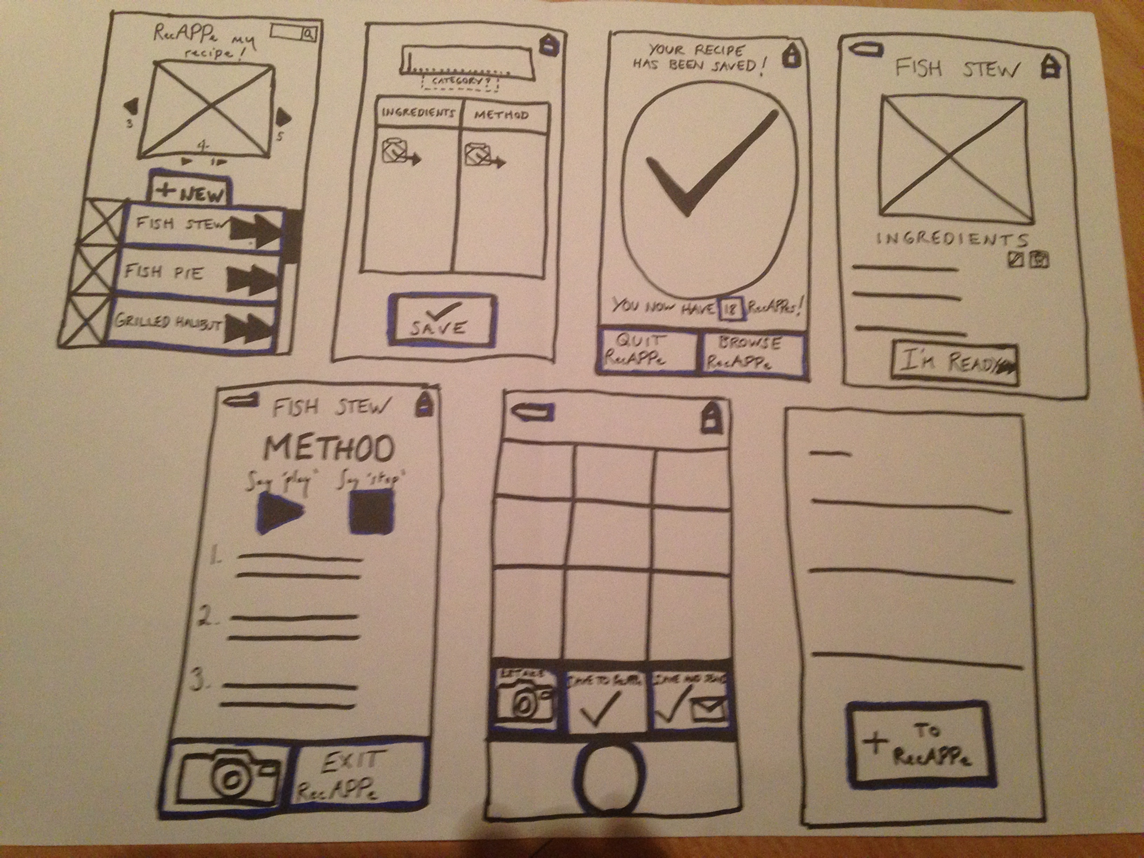 RecAPPe my
recipe!
3
5
4.
1
+ NEW
FISH STEW
FISH PIE
GRILLED HALIBUT
CATEGORY?
INGREDIENTS
METHOD
SAVE
YOUR RECIPE
HAS BEEN SAVED!
YOU NOW HAVE 18 RecAPPes!
QUIT
RecAPPe
BROWSE
RecAPPe
FISH STEW
INGREDIENTS
I'M READY
FISH STEW
METHOD
Say "play"
Say "stop"
1.
2.
3.
EXIT
RecAPPe
RETAKE
SAVE TO
SAVE AND SEND
+ TO
RecAPPe